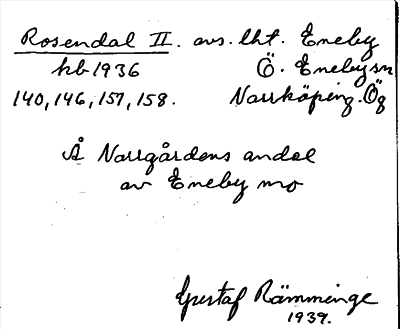 Rosendal II. avs. lht. Eneby
kb 1936 Ö. Eneby sn
140, 146, 157, 158. Norrköping. Ög
Å Norrgårdens andel
av Eneby mo
Gustaf Rämminge
1939.